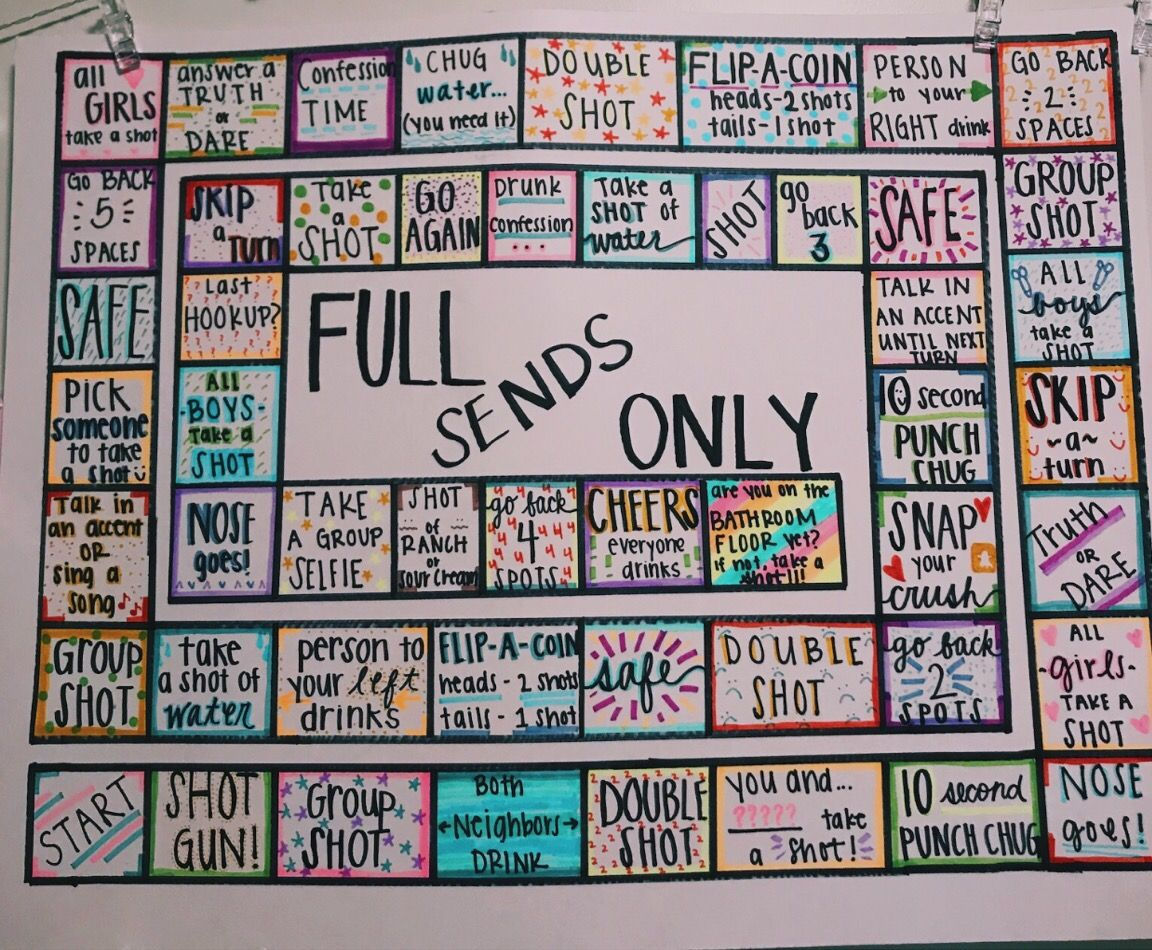 all
GIRLS
take a shot
answer a
TRUTH
or
DARE
Confession
TIME
CHUG
water...
(you need it)
DOUBLE
SHOT
FLIP-A-COIN
heads-2 shots
tails-1 shot
PERSON
to your
RIGHT drink
GO BACK
2
SPACES
GO BACK
5
SPACES
SKIP
a
TURN
Take
a
SHOT
GO
AGAIN
Drunk
confession
...
Take a
SHOT of
water
SHOT
go
back
3
SAFE
GROUP
SHOT
SAFE
Last
HOOKUP?
FULL
SENDS
ONLY
TALK IN
AN ACCENT
UNTIL NEXT
TURN
ALL
boys
take a
SHOT
PICK
someone
to take
a shot
ALL
-BOYS-
Take a
SHOT
10 second
PUNCH
CHUG
SKIP
~a~
turn
Talk in
an accent
OR
sing a
song
NOSE
goes!
TAKE
A GROUP
SELFIE
SHOT
of
RANCH
or
sour cream
go back
4
SPOTS
CHEERS
everyone
drinks
are you on the
BATHROOM
FLOOR yet?
if not, take a
shot!!!
SNAP
your
crush
Truth
OR
DARE
GROUP
SHOT
take
a shot of
water
person to
your left
drinks
FLIP-A-COIN
heads - 2 shots
tails - 1 shot
safe
DOUBLE
SHOT
go back
2
SPOTS
ALL
-girls-
TAKE A
SHOT
START
SHOT
GUN!
Group
SHOT
Both
Neighbors
DRINK
DOUBLE
SHOT
you and...
????? take
a shot!
10 second
PUNCH CHUG
NOSE
goes!